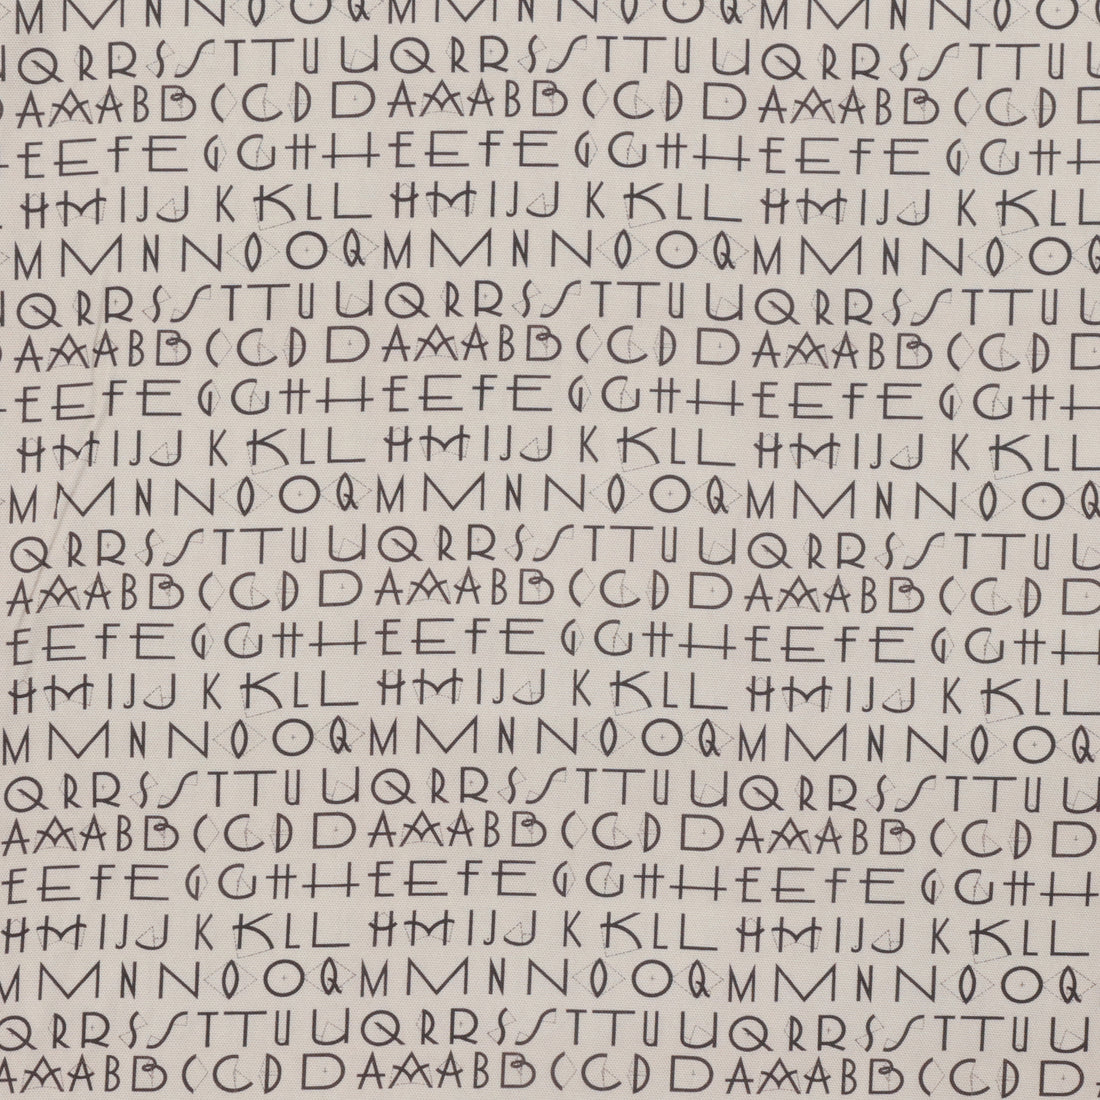 M M N N O O Q M M N N O O Q M M N N O O
U Q R R S S T T U U Q R R S S T T U U Q R R S S T T U U
D A A A B B C C D D A A A B B C C D D A A A B B C C D D
H E E F E G G H H E E F E G G H H E E F E G G H H
H M I J J K K L L H M I J J K K L L H M I J J K K L L
M M N N O O Q M M N N O O Q M M N N O O Q
U Q R R S S T T U U Q R R S S T T U U Q R R S S T T U U
A A A B B C C D D A A A B B C C D D A A A B B C C D D
H E E F E G G H H E E F E G G H H E E F E G G H H
H M I J J K K L L H M I J J K K L L H M I J J K K L L
M M N N O O Q M M N N O O Q M M N N O O Q
Q R R S S T T U U Q R R S S T T U U Q R R S S T T U U
A A A B B C C D D A A A B B C C D D A A A B B C C D D
E E F E G G H H E E F E G G H H E E F E G G H H
H M I J J K K L L H M I J J K K L L H M I J J K K L L
M M N N O O Q M M N N O O Q M M N N O O Q
Q R R S S T T U U Q R R S S T T U U Q R R S S T T U U
A A A B B C C D D A A A B B C C D D A A A B B C C D D
E E F E G G H H E E F E G G H H E E F E G G H H
H M I J J K K L L H M I J J K K L L H M I J J K K L L
M M N N O O Q M M N N O O Q M M N N O O Q
Q R R S S T T U U Q R R S S T T U U Q R R S S T T U U
A A A B B C C D D A A A B B C C D D A A A B B C C D D